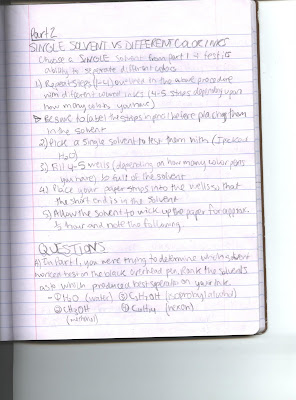 Part 2
SINGLE SOLVENT VS DIFFERENT COLOR INKS
Choose a SINGLE solvent from part 1 & test its
ability to separate different colors
1) Repeat steps outlined in the above procedure
with different colored inks (4-5 strips depending upon
how many colors you have)
BE SURE to label the strips in pencil before placing them
in the solvent
2) Pick a single solvent to test them with (I picked
H2O)
3) Fill 4-5 wells (depending on how many color pens
you have) to full of the solvent
4) Place your paper strips into the wells so that
the short end is in the solvent
5) Allow the solvent to wick up the paper for approx.
½ hour and note the following.
QUESTIONS
A) In part 1, you were trying to determine which solvent
worked best on the black overhead pen. Rank the solvents
as to which produced best separation on your
- ① H2O (water) ③ C3H7OH (isopropyl alcohol)
② CH3OH ④ (hexan)
(methanol)